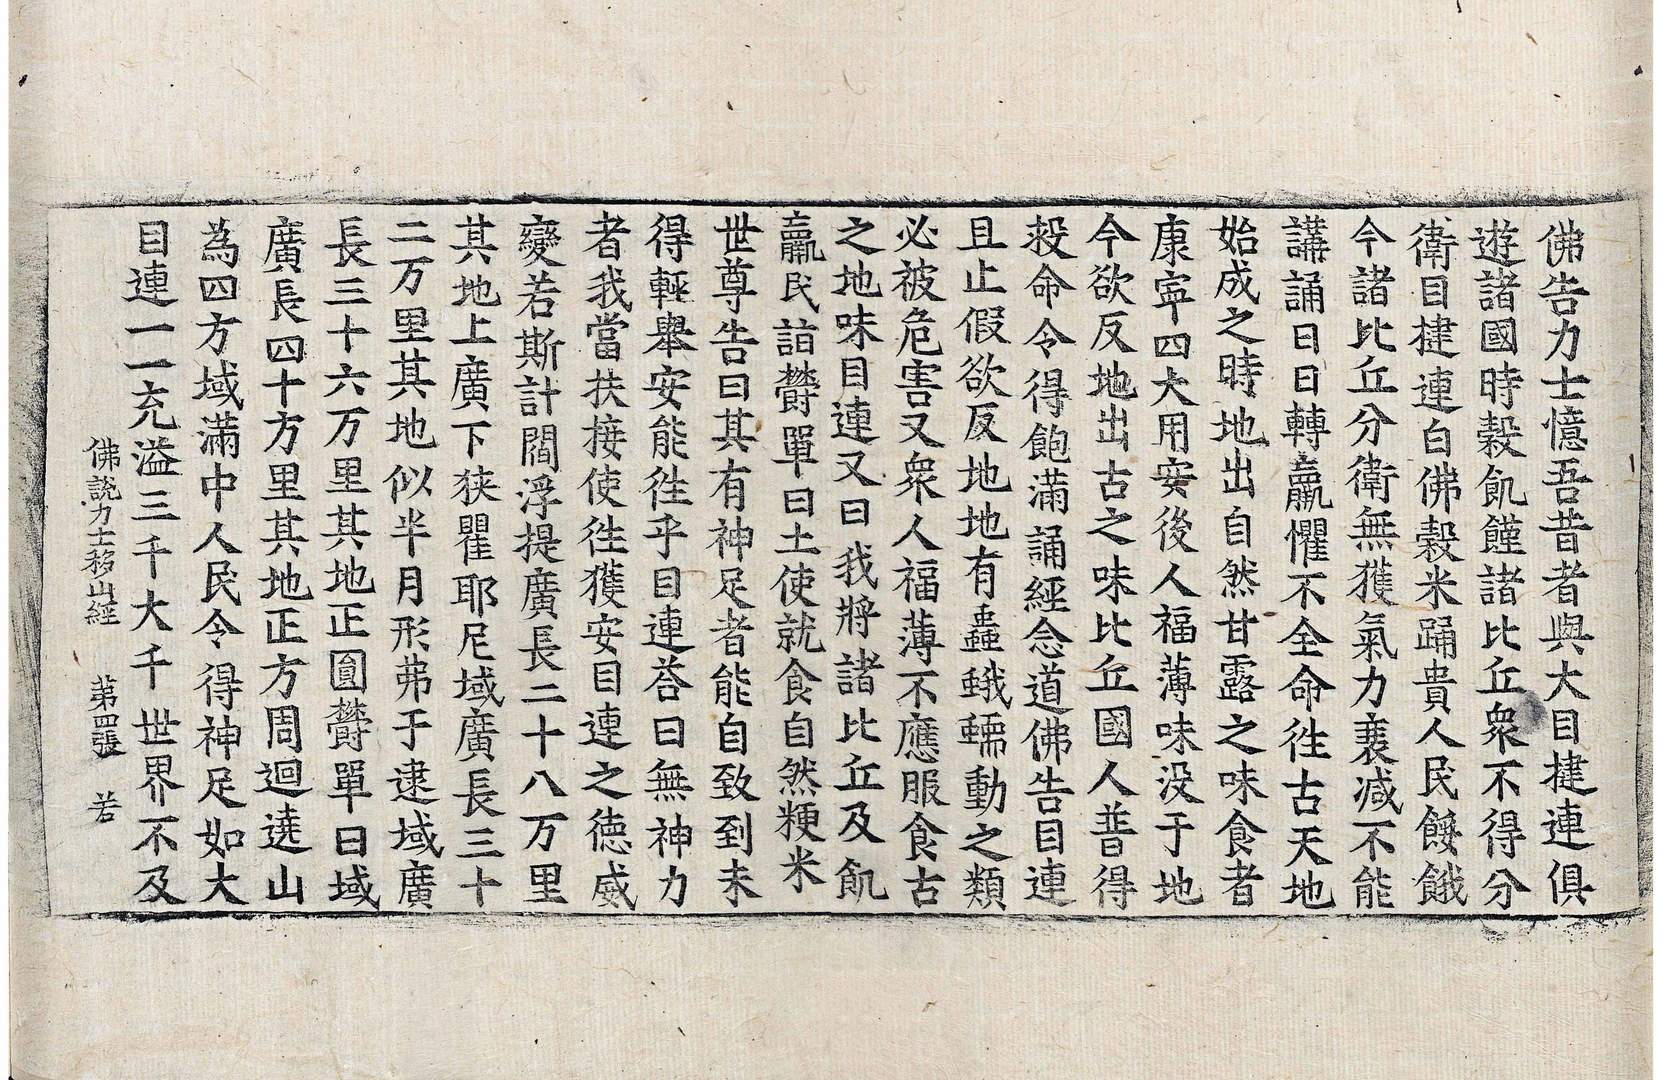 佛告力士憶吾昔者與大目揵連俱
遊諸國時穀飢饉諸比丘衆不得分
衛目揵連白佛穀米踊貴人民餧餓
今諸比丘分衛無獲氣力衰減不能
講誦日日轉羸懼不全命徃古天地
始成之時地出自然甘露之味食者
康寧四大用安後人福薄味没于地
今欲反地出古之味比丘國人普得
救命令得飽滿誦經念道佛告目連
且止假欲反地地有蟲蛾蠕動之類
必被危害又衆人福薄不應服食古
之地味目連又曰我將諸比丘及飢
羸民詣欝單曰土使就食自然粳米
世尊告曰其有神足者能自致到未
得輕舉安能徃乎目連荅曰無神力
者我當扶接使徃獲安目連之德威
變若斯計閻浮提廣長二十八万里
其地上廣下狹瞿耶尼域廣長三十
二万里其地似半月形弗于逮域廣
長三十六万里其地正圓欝單曰域
廣長四十万里其地正方周迴遶山
為四方域滿中人民令得神足如大
目連一一充溢三千大千世界不及
佛說力士移山經　第四張　若